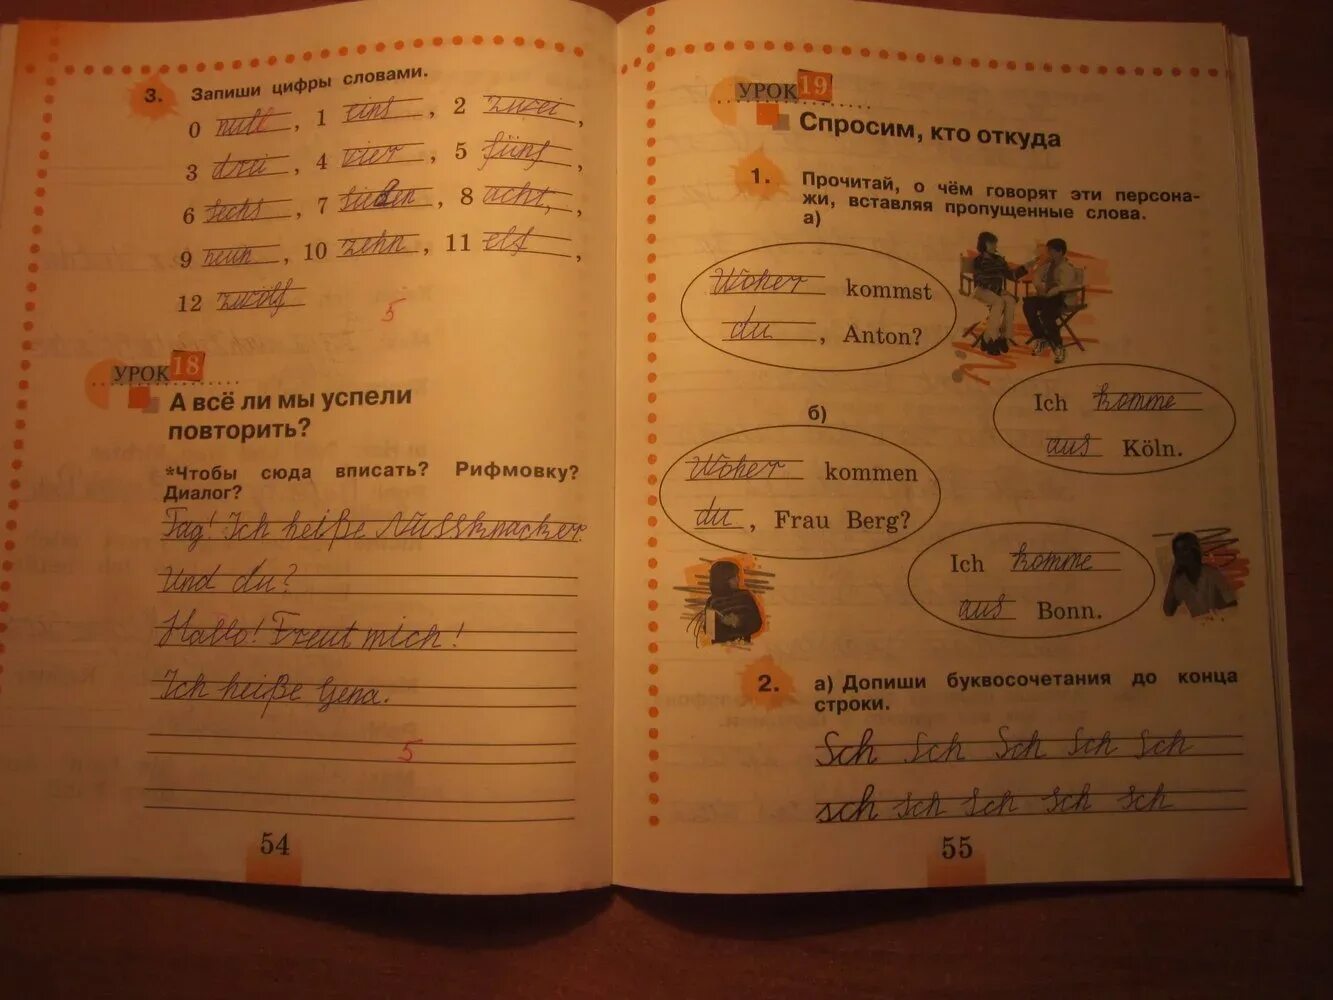 3. Запиши цифры словами.
0 null, 1 eins, 2 zwei,
3 drei, 4 vier, 5 fünf,
6 sechs, 7 sieben, 8 acht,,
9 neun, 10 zehn, 11 elf,
12 zwölf
5
УРОК 18
А всё ли мы успели
повторить?
*Чтобы сюда вписать? Рифмовку?
Диалог?
Tag! Ich heiße Nussknacker.
Und du?
Hallo! Freut mich!
Ich heiße Gena.
5
54
УРОК 19
Спросим, кто откуда
1. Прочитай, о чём говорят эти персона-
жи, вставляя пропущенные слова.
а)
Woher kommst
du, Anton?
Ich komme
aus Köln.
б)
Woher kommen
du, Frau Berg?
Ich komme
aus Bonn.
2. а) Допиши буквосочетания до конца
строки.
Sch Sch Sch Sch Sch
sch sch sch sch sch
55